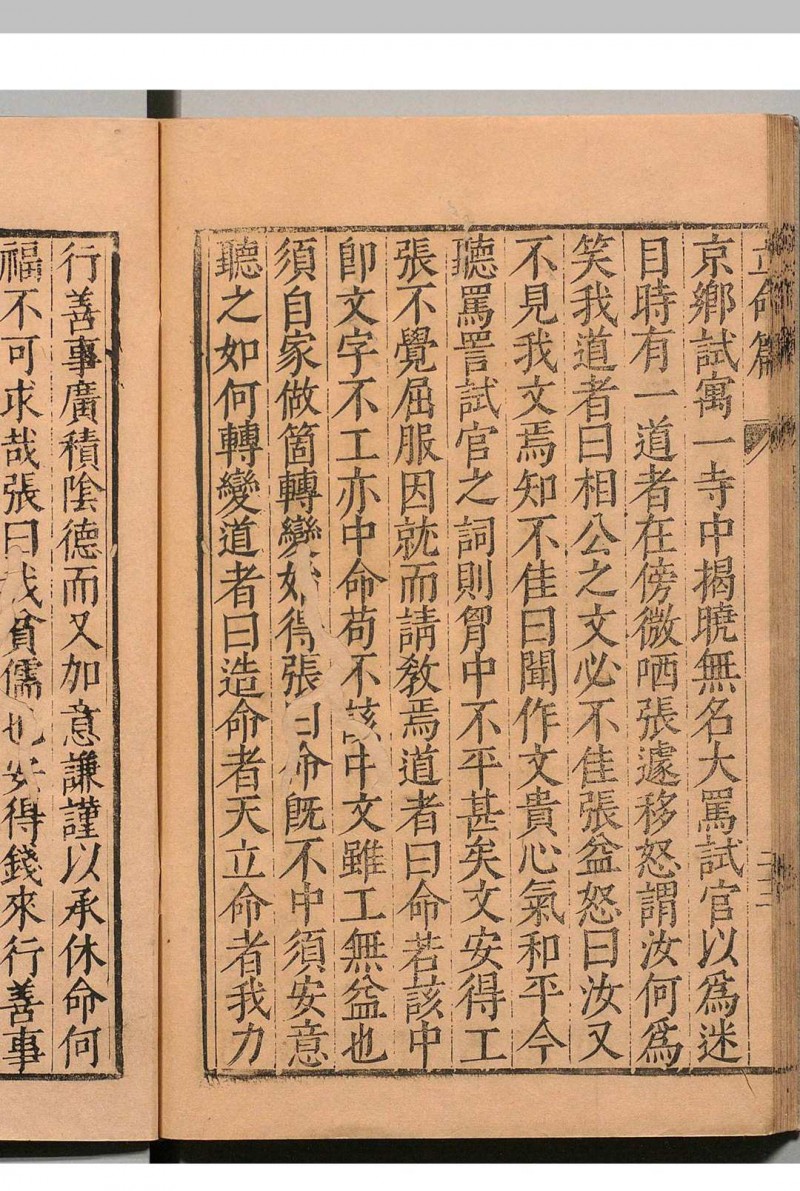 立命篇
二十二
京鄉試寓一寺中揭曉無名大罵試官以爲迷
目時有一道者在傍微哂張遽移怒謂汝何爲
笑我道者曰相公之文必不佳張益怒曰汝又
不見我文焉知不佳曰聞作文貴心氣和平今
聽罵詈試官之詞則胷中不平甚矣文安得工
張不覺屈服因就而請教焉道者曰命若該中
卽文字不工亦中命苟不該中文雖工無益也
須自家做箇轉變始得張曰命旣不中須安意
聽之如何轉變道者曰造命者天立命者我力
行善事廣積陰德而又加意謙謹以承休命何
福不可求哉張曰我貧儒也安得錢來行善事